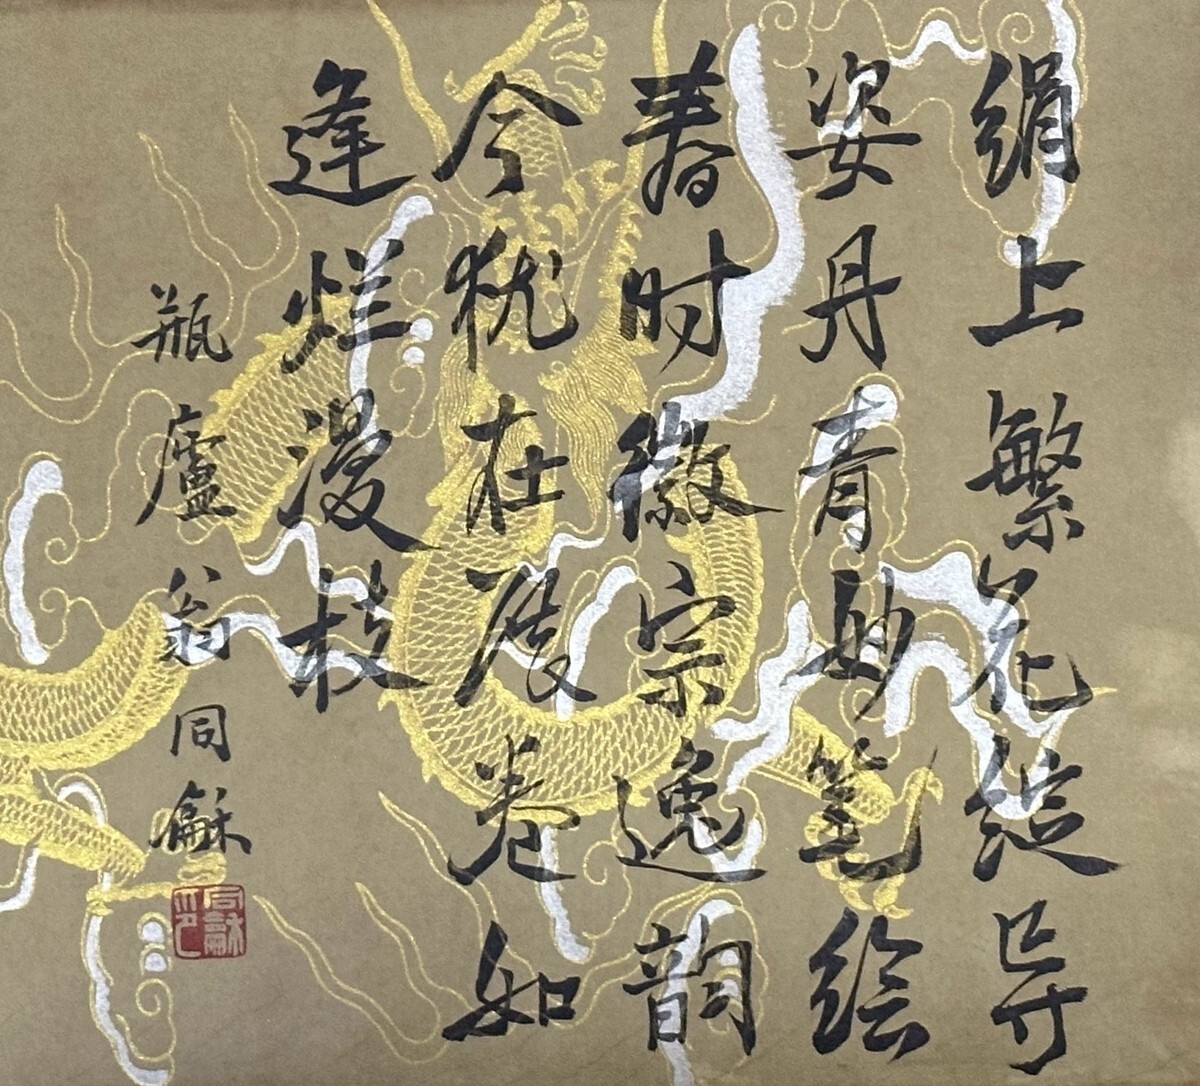 绢上繁花绽异
姿丹青妙笔绘
春时徽宗逸韵
今犹在展卷如
逢烂漫枝
瓶廬翁同龢
同龢印